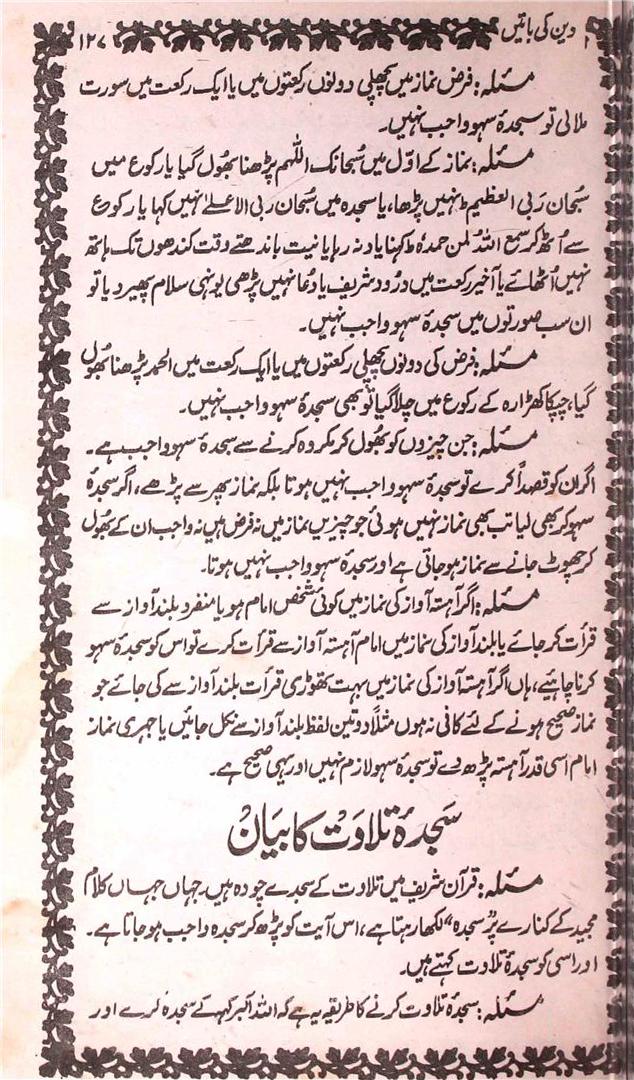 دین کی باتیں ۱۲۷
مسئلہ: فرض نماز میں پچھلی دونوں رکعتوں میں یا ایک رکعت میں سورت
ملالی تو سجدۂ سہو واجب نہیں۔
مسئلہ: نماز کے اوّل میں سُبحانک اللّٰھم پڑھنا بھُول گیا یا رکوع میں
سُبحان رَبی العظیم ط نہیں پڑھا، یا سجدہ میں سُبحان ربی الاعلیٰ نہیں کہا یا رکوع
سے اُٹھ کر سمع اللہُ لمن حمدہ ط کہنا یاد نہ رہا یا نیت باندھتے وقت کندھوں تک ہاتھ
نہیں اُٹھائے یا آخیر رکعت میں درُود شریف یا دُعا نہیں پڑھی یونہی سلام پھیر دیا تو
ان سب صورتوں میں سجدۂ سہو واجب نہیں۔
مسئلہ: فرض کی دونوں پچھلی رکعتوں میں یا ایک رکعت میں الحمد پڑھنا بھُول
گیا، چپکا کھڑا رہ کے رکوع میں چلا گیا تو بھی سجدۂ سہو واجب نہیں۔
مسئلہ: جن چیزوں کو بھُول کر مکروہ کرنے سے سجدۂ سہو واجب ہے۔
اگر ان کو قصداً کرے تو سجدۂ سہو واجب نہیں ہوتا بلکہ نماز پھر سے پڑھے، اگر سجدۂ
سہو کر بھی لیا تب بھی نماز نہیں ہوئی جو چیزیں نماز میں نہ فرض ہیں نہ واجب ان کے بھُول
کر چھوٹ جانے سے نماز ہو جاتی ہے اور سجدۂ سہو واجب نہیں ہوتا۔
مسئلہ: اگر آہستہ آواز کی نماز میں کوئی شخص امام ہو یا منفرد بلند آواز سے
قرأت کر جائے یا بلند آواز کی نماز میں امام آہستہ آواز سے قرأت کرے تو اس کو سجدۂ سہو
کرنا چاہئیے، ہاں اگر آہستہ آواز کی نماز میں بہت تھوڑی قرأت بلند آواز سے کی جائے جو
نماز صحیح ہونے کے لئے کافی نہ ہوں مثلاً دو تین لفظ بلند آواز سے نکل جائیں یا جہری نماز
امام اسی قدر آہستہ پڑھ دے تو سجدۂ سہو لازم نہیں اور یہی صحیح ہے۔
سَجدۂ تلاوَتْ کا بیَانْ
مسئلہ: قرآن شریف میں تلاوت کے سجدے چودہ ہیں۔ جہاں جہاں کلام
مجید کے کنارے پرْ سجدہ“ لکھا رہتا ہے، اس آیت کو پڑھ کر سجدہ واجب ہو جاتا ہے۔
اور اسی کو سجدۂ تلاوت کہتے ہیں۔
مسئلہ: سجدۂ تلاوت کرنے کا طریقہ یہ ہے کہ اللہ اکبر کہہ کے سجدہ کرے اور